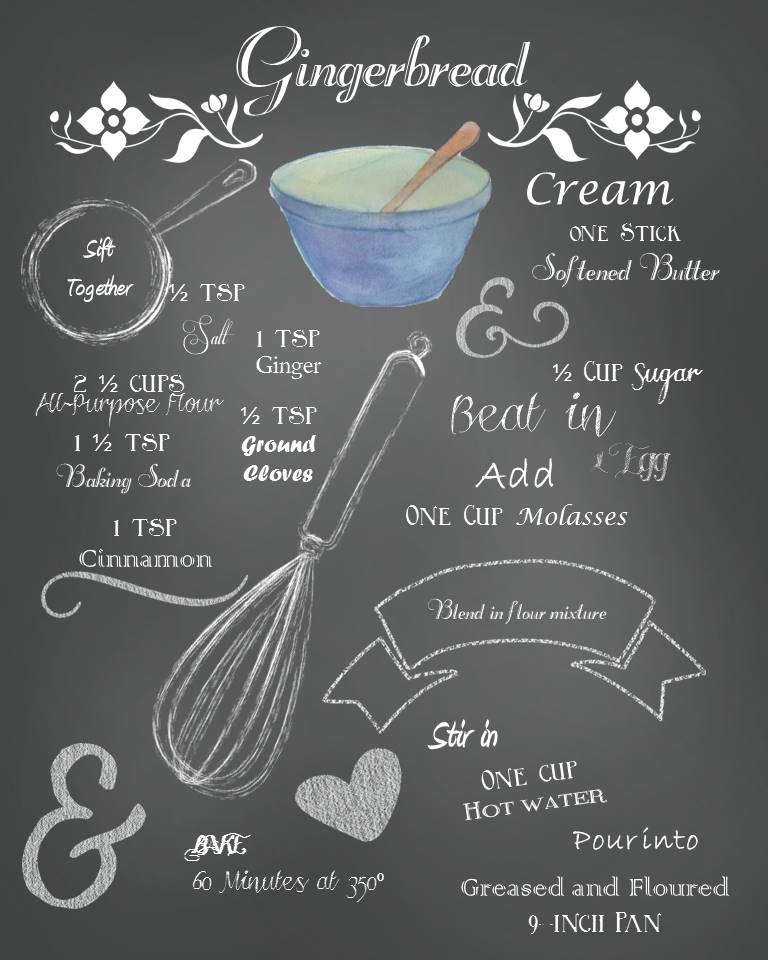 Gingerbread
Sift
Together
½ TSP
Salt
1 TSP
Ginger
2 ½ CUPS
All-Purpose Flour
½ TSP
Ground
Cloves
1 ½ TSP
Baking Soda
1 TSP
Cinnamon
Cream
ONE STICK
Softened Butter
&
½ CUP Sugar
Beat in
1 Egg
Add
ONE CUP Molasses
Blend in flour mixture
Stir in
ONE CUP
HOT WATER
Pour into
Greased and Floured
9--INCH PAN
&
BAKE
60 Minutes at 350°